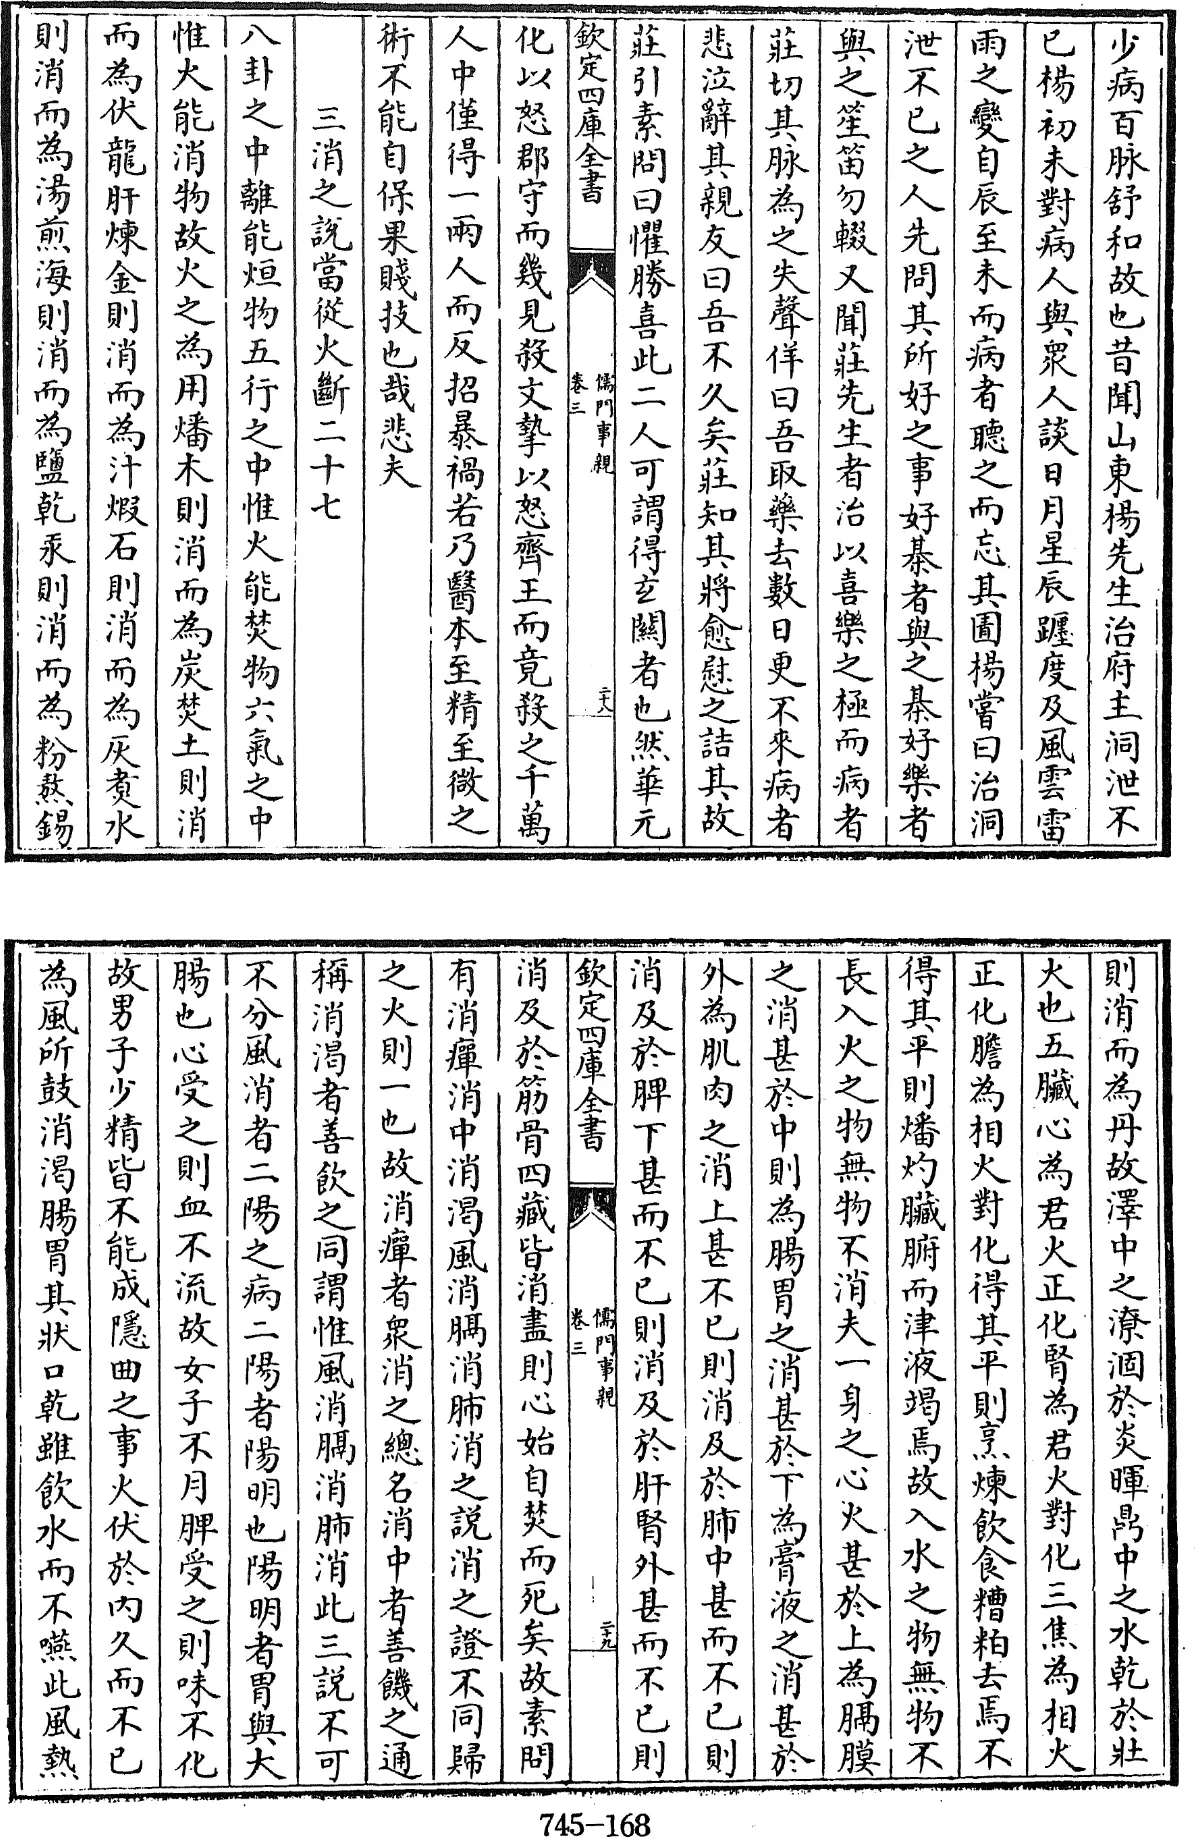 少病百脉舒和故也昔聞山東楊先生治府主洞泄不
已楊初未對病人與衆人談日月星辰躔度及風雲雷
雨之變自辰至未而病者聽之而忘其圊楊嘗曰治洞
泄不已之人先問其所好之事好棊者與之棊好樂者
與之笙笛勿輟又聞莊先生者治以喜樂之極而病者
莊切其脉為之失聲佯曰吾取藥去數日更不來病者
悲泣辭其親友曰吾不久矣莊知其將愈慰之詰其故
莊引素問曰懼勝喜此二人可謂得玄關者也然華元
欽定四庫全書
儒門事親
卷三
二十八
化以怒郡守而幾見殺文摯以怒齊王而竟殺之千萬
人中僅得一兩人而反招暴禍若乃醫本至精至微之
術不能自保果賤技也哉悲夫
三消之說當從火斷二十七
八卦之中離能烜物五行之中惟火能焚物六氣之中
惟火能消物故火之為用燔木則消而為炭焚土則消
而為伏龍肝煉金則消而為汁煅石則消而為灰煑水
則消而為湯煎海則消而為鹽乾汞則消而為粉熬錫
則消而為丹故澤中之潦涸於炎暉鼎中之水乾於壯
火也五臟心為君火正化腎為君火對化三焦為相火
正化膽為相火對化得其平則烹煉飲食糟粕去焉不
得其平則燔灼臟腑而津液竭焉故入水之物無物不
長入火之物無物不消夫一身之心火甚於上為膈膜
之消甚於中則為腸胃之消甚於下為膏液之消甚於
外為肌肉之消上甚不已則消及於肺中甚而不已則
消及於脾下甚而不已則消及於肝腎外甚而不已則
欽定四庫全書
儒門事親
卷三
二十九
消及於筋骨四藏皆消盡則心始自焚而死矣故素問
有消癉消中消渴風消膈消肺消之説消之證不同歸
之火則一也故消癉者衆消之總名消中者善饑之通
稱消渴者善飲之同謂惟風消膈消肺消此三説不可
不分風消者二陽之病二陽者陽明也陽明者胃與大
腸也心受之則血不流故女子不月脾受之則味不化
故男子少精皆不能成隱曲之事火伏於内久而不已
為風所鼓消渴腸胃其狀口乾雖飲水而不嚥此風熱
745-168